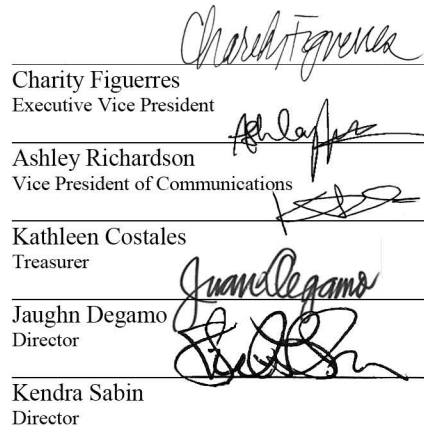 Charity Figuerres
Executive Vice President
Ashley Richardson
Vice President of Communications
Kathleen Costales
Treasurer
Jaughn Degamo
Director
Kendra Sabin
Director